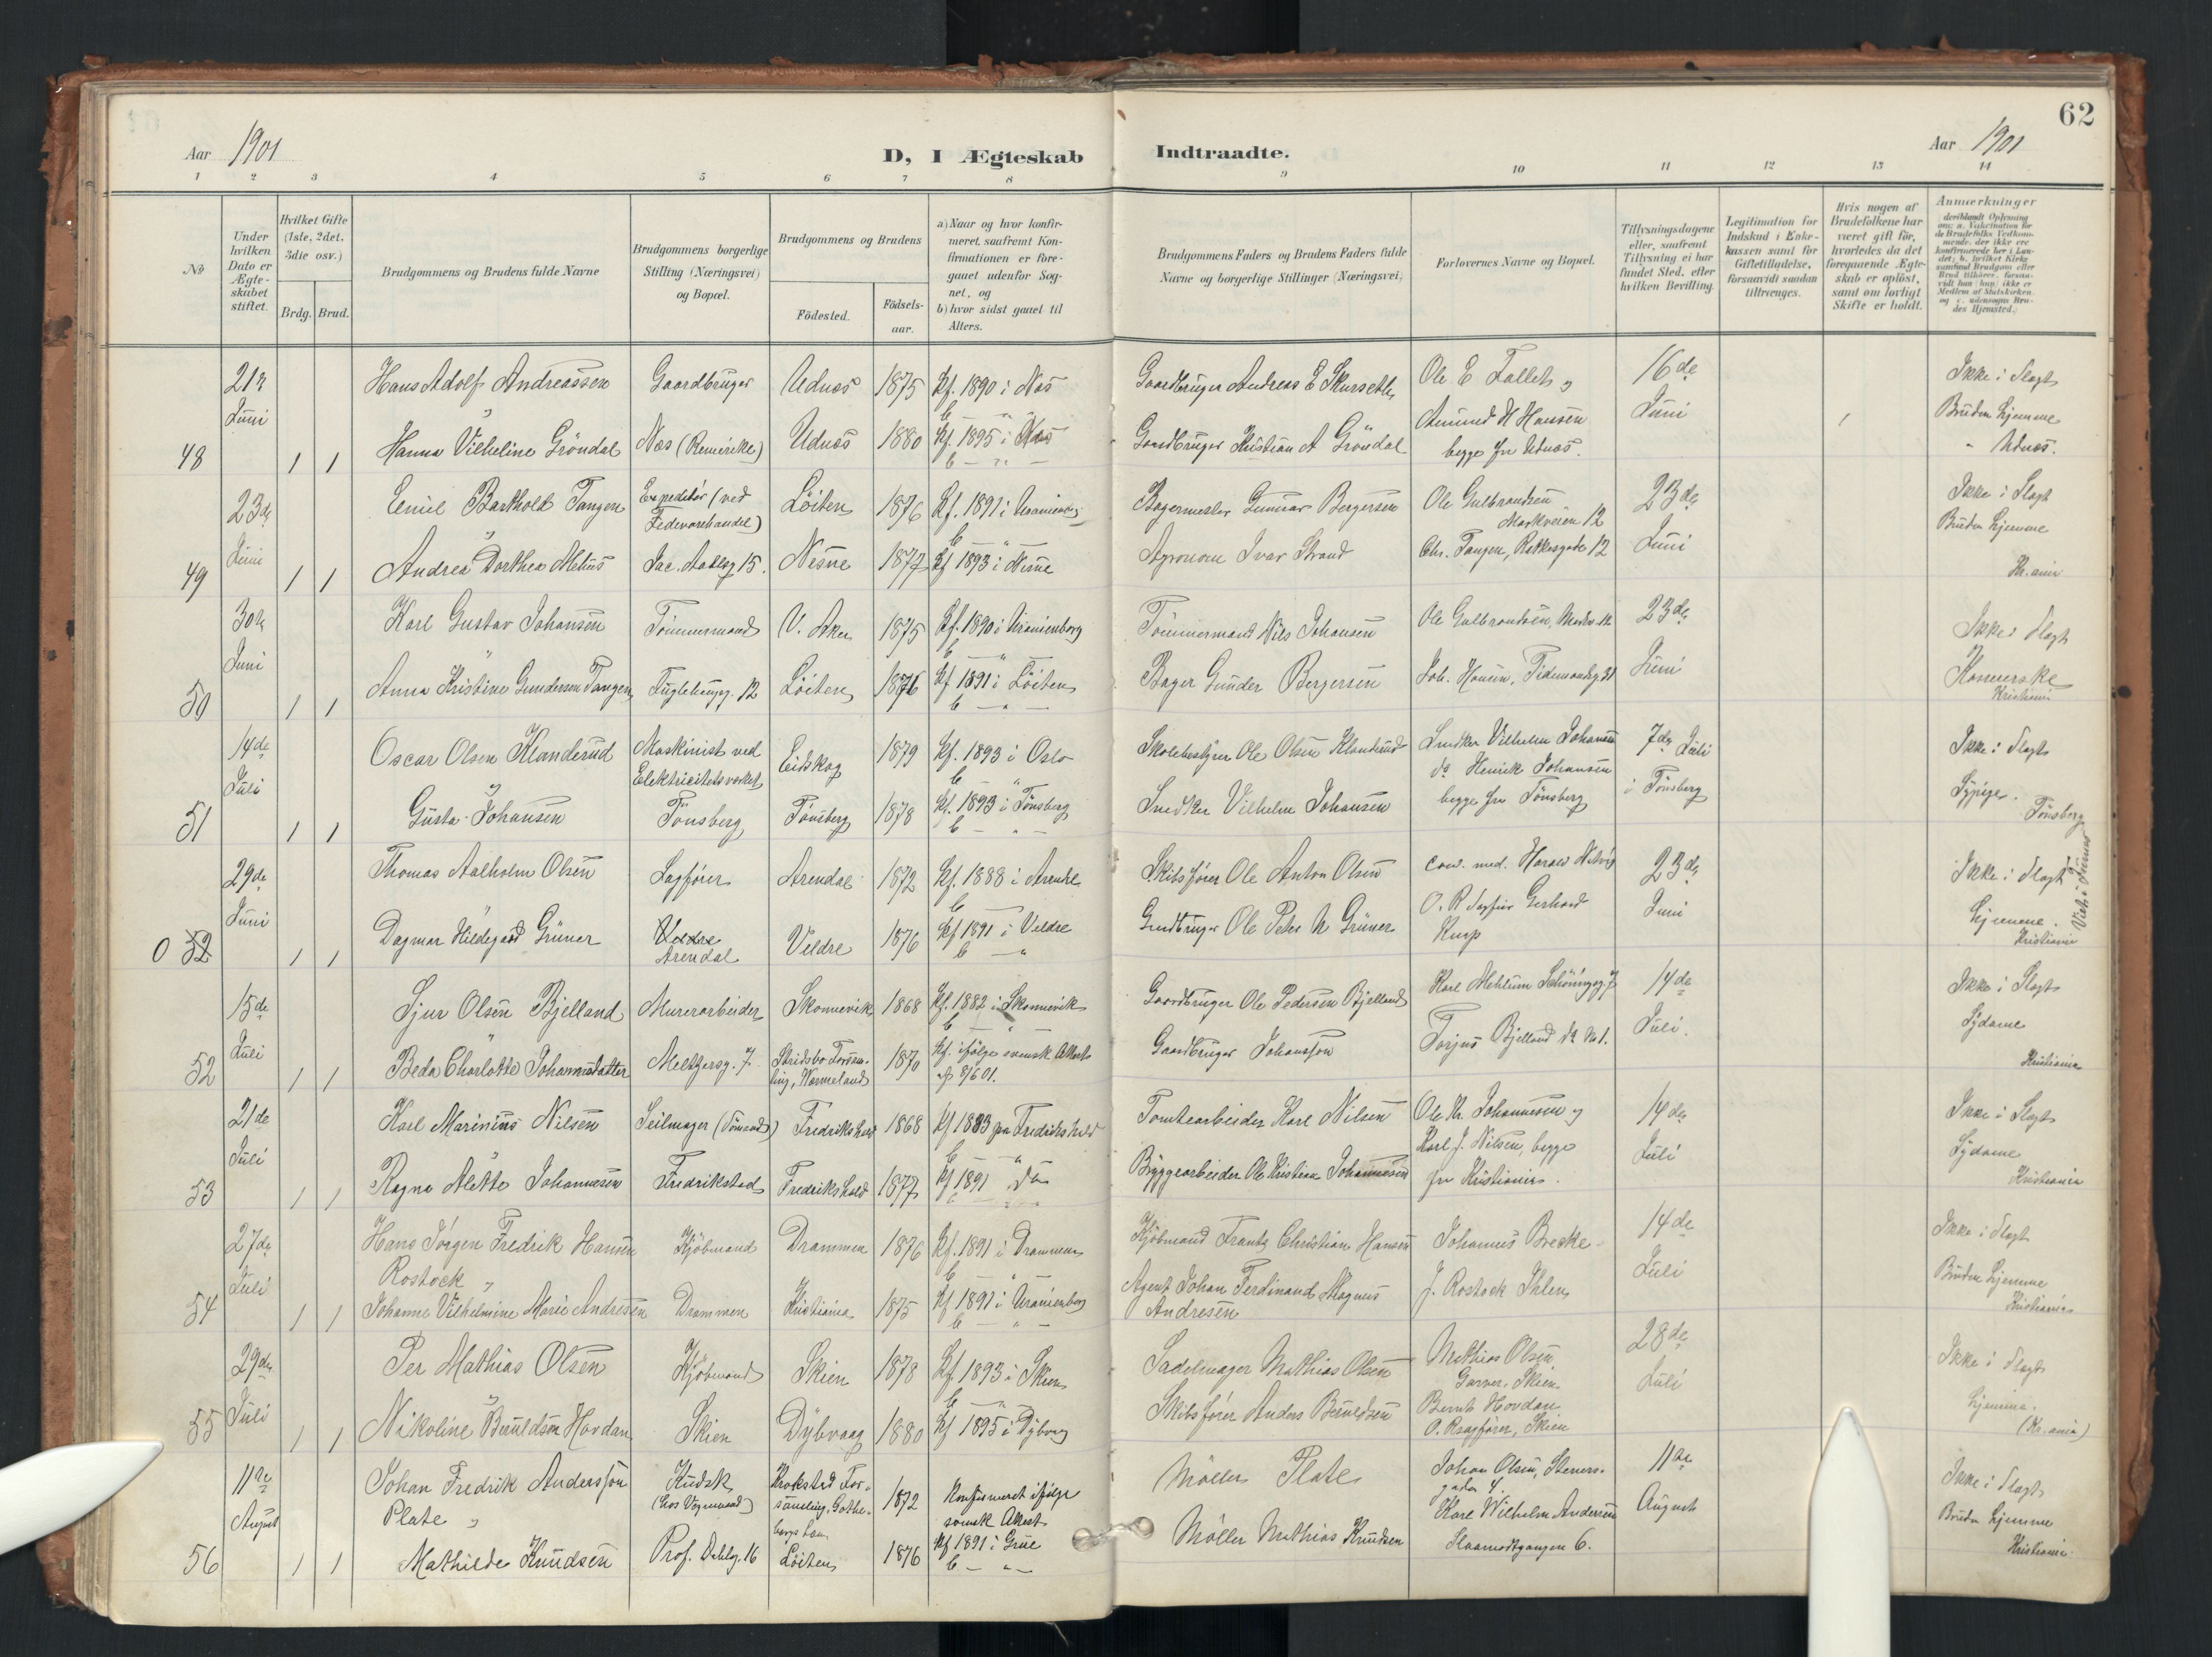 62
Aar 1901
D, I Ægteskab Indtraadte.
Aar 1901
1 2 3 4 5 6 7 8 9 10 11 12 13 14
No
Under hvilken Dato er Ægteskabet stiftet.
Hvilket Gifte (1ste, 2det, 3die osv.)
Brdg. Brud.
Brudgommens og Brudens fulde Navne
Brudgommens borgerlige Stilling (Næringsvei) og Bopæl.
Brudgommens og Brudens
Födested.
Födselsaar.
a) Naar og hvor konfirmeret, saafremt Konfirmationen er foregaaet udenfor Sognet, og
b) hvor sidst gaaet til Alters.
Brudgommens Faders og Brudens Faders fulde Navne og borgerlige Stillinger (Næringsvei)
Forlovernes Navne og Bopæl.
Tillysningsdagene eller, saafremt Tillysning ei har fundet Sted, efter hvilken Bevilling.
Legitimation for Indskud i Enkekassen samt for Giftetilladelse, forsaavidt saadan tiltrænges.
Hvis nogen af Brudefolkene har været gift för, hvorledes da det foregaaende Ægteskab er oplöst, samt om lovligt Skifte er holdt.
Anmærkninger
48
21de Juni
1 1
Hans Adolf Andreassen
Gaardbruger
Udnæs 1875 Kf. 1890 i Næs
Hanna Vilheline Gröndal
Næs (Romerike)
Udnæs 1880 Kf. 1895 i Næs
Gaardbruger Andreas E Skurseth
Gaardbruger Kristian A Gröndal
Ole E Fallet og
Amund H Hansen
begge fra Udnæs.
16de Juni
Ikke i Slegt
Brudens hjemme
Udnæs.
49
23de Juni
1 1
Emil Barthold Tangen
Expeditör (ved Fedevarehandel)
Löiten 1876 Kf. 1891 i Uranienborg
Andrea Dorthea Metius
Jac. Aallsg 15.
Nesne 1877 Kf 1893 i Nesne
Bagermester Gunnar Bergersen
Agronom Ivar Strand
Ole Gulbrandsen
Markveien 12
Chr. Tangen, Rathkesgade 12
23de Juni
Ikke i Slegt
Brudens hjemme
Kr.ania
50
30te Juni
1 1
Karl Gustav Johansen
Tömmermand
V. Aker 1875 Kf. 1890 i Uranienborg
Anna Kristine Gundersen Tangen
Fuglehaugg. 12
Löiten 1876 Kf 1891 i Löiten
Tömmermand Nils Johansen
Bager Gunder Bergersen
Ole Gulbrandsen, Markv. 12
Joh. Hansen, Tidemandsg 21
23de Juni
Ikke i Slegt
Kristiania
51
14de Juli
1 1
Oscar Olsen Klanderud
Maskinist ved Elektricitetsverket
Eidskog 1879 Kf. 1893 i Oslo
Gusta Johansen
Tönsberg
Tönsberg 1878 Kf. 1893 i Tönsberg
Skolebestyrer Ole Olsen Klanderud
Snedker Vilhelm Johansen
Snedker Vilhelm Johansen
do Henrik Johansen
begge fra Tönsberg
7de Juli i Tönsberg
Ikke i Slegt
Sypige.
Tönsberg
0 52
29de Juni
1 1
Thomas Aalholm Olsen
Sagförer
Arendal 1872 Kf. 1888 i Arendal
Dagmar Hildegard Grüner
Veldre
Arendal
Veldre 1876 Kf 1891 i Veldre
Skibsförer Ole Anton Olsen
Gaardbruger Ole Peter N Grüner
O. R Sagförer Gerhard
23de Juni
Ikke i Slegt
hjemme.
Kristiania
52
15de Juli
1 1
Sjur Olsen Bjelland
Murerarbeider
Skonnevik 1868 Kf. 1882 i Skonnevik
Beda Charlotte Johannesdatter
Meltzersg. 7
1870 Kf. ifölge svensk Attest
af 8/6 01.
Gaardbruger Ole Pedersen Bjelland
Gaardbruger Johansson
Karl Mehlum Schöningsg 7
Torjus Bjelland
14de Juli.
Ikke i Slegt
Sydame
Kristiania
53
21de Juli
1 1
Karl Marinius Nilsen
Seilmager (Sömand)
Fredrikshald 1868 Kf 1883 paa Fredrikshald
Ragna Alette Johannesen
Fredrikstad
Fredrikshald 1877 Kf 1891 do
Tomtearbeider Karl Nilsen
Bryggearbeider Ole Kristian Johannesen
Ole Kr. Johannesen og
Karl J. Nilsen, begge
fra Kristiania.
14de Juli
Ikke i Slegt
Sydame
Kristiania
54
27de Juli
1 1
Hans Jörgen Fredrik Hansen
Rostock
Kjöbmand
Drammen 1876 Kf. 1891 i Drammen
Johanne Vilhelmine Marie Andresen
Drammen
Kristiania 1875 Kf 1891 i Uranienborg
Kjöbmand Frantz Christian Hansen
Agent Johan Ferdinand Magnus
Andresen
Johannes Brekke
J. Rostock Ihlen
14de Juli
Ikke i Slegt
Brudens hjemme
Kristiania
55
29de Juli
1 1
Per Mathias Olsen
Kjöbmand
Skien 1878 Kf 1893 i Skien
Nikoline Beruldsen Hovdan
Skien
Dybvaag 1880 Kf 1895 i Dybvaag
Sadelmager Mathias Olsen
Skibsförer Anders Beruldsen
Mathias Olsen
Garver, Skien
Bernt Hovdan
O. Rsagförer, Skien
28de Juli
Ikke i Slegt
hjemme.
(Kr.ania)
56
11te August
1 1
Johan Fredrik Andersson
Plate
Kudsk
(hos Vognmand)
Krokstad Forsamling, Gotheborgs Län
1872 Konfirmeret ifölge
svensk Attest
Mathilde Knudsen
Prof. Dahlsg. 16
Löiten 1876 Kf 1891 i Grue
Möller Plate
Möller Mathias Knudsen
Johan Olsen, Stenersgaden 4.
Karl Wilhelm Andersen
6.
11te August
Ikke i Slegt
Brudens hjemme
Kristiania.